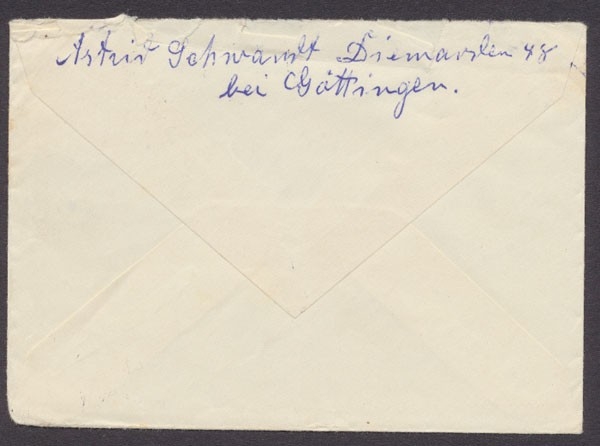 Astrid Schwandt Diemarden 48
bei Göttingen.